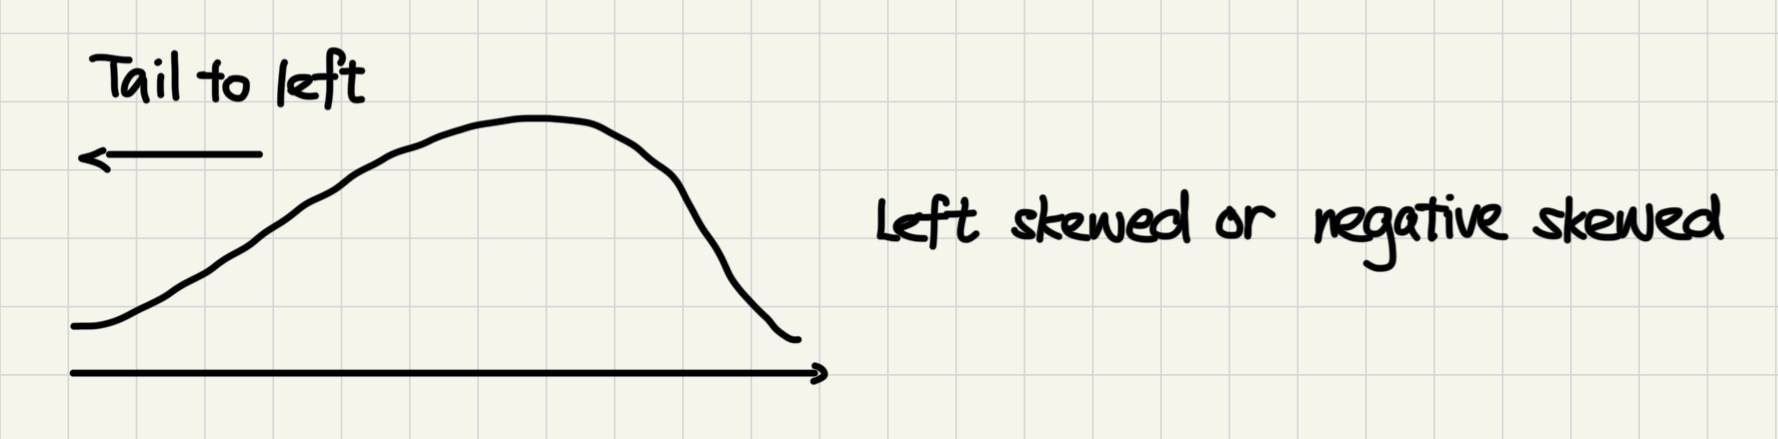 Tail to left
Left skewed or negative skewed